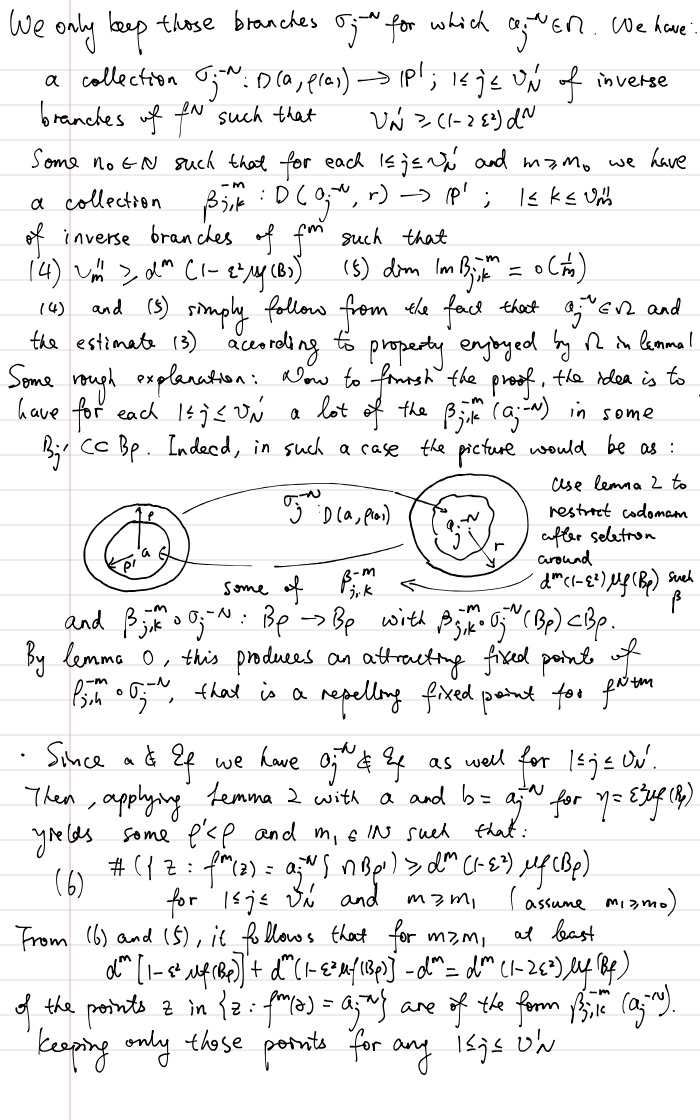 We only keep those branches σ_j^{-N} for which a_j^{-N} ∈ Ω. We have:
a collection σ_j^{-N} : D(a, ρ(a)) → ℙ¹ ; 1 ≤ j ≤ ν_N' of inverse
branches of f^N such that ν_N' ≥ (1-2ε²)d^N
Some n₀ ∈ ℕ such that for each 1 ≤ j ≤ ν_N' and m ≥ m₀ we have
a collection β_{j,k}^{-m} : D(a_j^{-N}, r) → ℙ¹ ; 1 ≤ k ≤ ν_m''
of inverse branches of f^m such that
(4) ν_m'' ≥ d^m (1-ε² μf(B)) (5) dim Im β_{j,k}^{-m} = o(1/m)
(4) and (5) simply follow from the fact that a_j^{-N} ∈ Ω and
the estimate (3) according to property enjoyed by Ω in lemma 1
Some rough explanation: Now to finish the proof, the idea is to
have for each 1 ≤ j ≤ ν_N' a lot of the β_{j,k}^{-m}(a_j^{-N}) in some
B_ρ' ⊂⊂ B_ρ. Indeed, in such a case the picture would be as :
ρ
ρ'
a
σ_j^{-N} : D(a, ρ(a))
a_j^{-N}
r
some of β_{j,k}^{-m}
use lemma 2 to
restrict codomain
after seletion
around
d^m(1-ε²) μf(B_ρ) such
β
and β_{j,k}^{-m} ∘ σ_j^{-N} : B_ρ → B_ρ with β_{j,k}^{-m} ∘ σ_j^{-N}(B_ρ) ⊂ B_ρ.
By lemma 0, this produces an attracting fixed point of
β_{j,k}^{-m} ∘ σ_j^{-N}, that is a repelling fixed point for f^{N+m}
· Since a ∉ Ef we have a_j^{-N} ∉ Ef as well for 1 ≤ j ≤ ν_N'.
Then, applying Lemma 2 with a and b = a_j^{-N} for η = ε² μf(B_ρ)
yields some ρ' < ρ and m₁ ∈ ℕ such that:
(6) # ({ z : f^m(z) = a_j^{-N} } ∩ B_ρ') ≥ d^m (1-ε²) μf(B_ρ)
for 1 ≤ j ≤ ν_N' and m ≥ m₁ (assume m₁ ≥ m₀)
From (6) and (5), it follows that for m ≥ m₁ at least
d^m [1-ε² μf(B_ρ)] + d^m (1-ε² μf(B_ρ)] - d^m = d^m (1-2ε²) μf(B_ρ)
of the points z in {z : f^m(z) = a_j^{-N}} are of the form β_{j,k}^{-m} (a_j^{-N}).
keeping only those points for any 1 ≤ j ≤ ν_N'